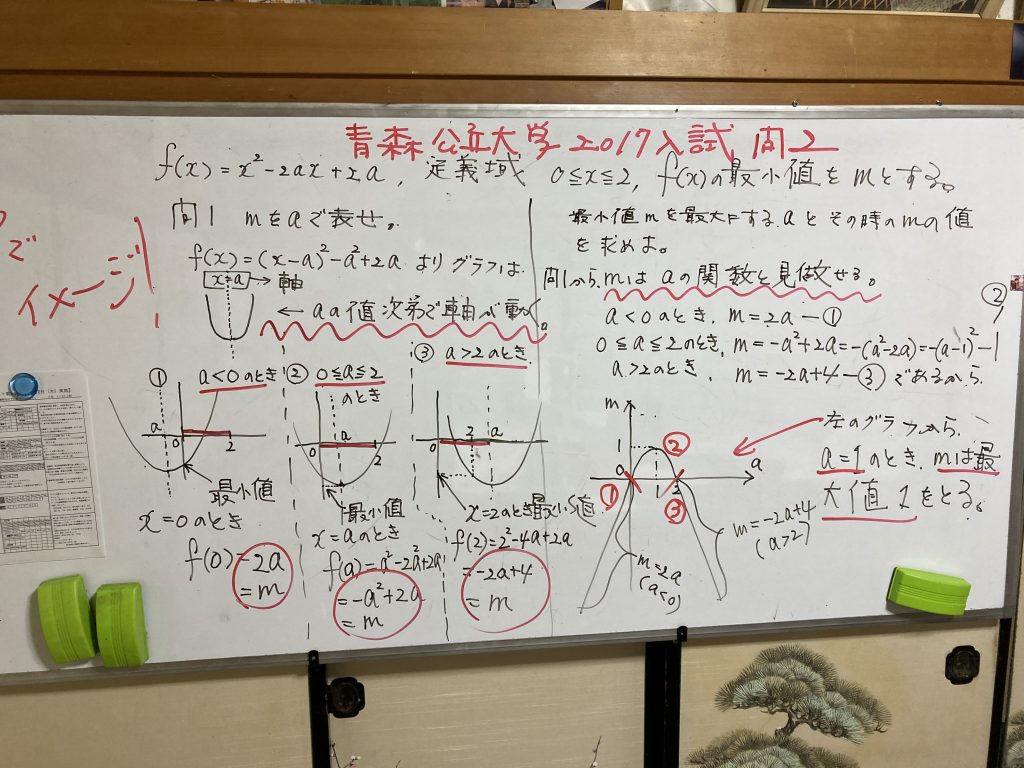 青森公立大学 2017入試 問2
f(x) = x² - 2ax + 2a , 定義域 0≦x≦2, f(x)の最小値をmとする。
で
イメージ!
問1 mをaで表せ。
f(x) = (x-a)² - a² + 2a よりグラフは
x=a → 軸
← aの値次第で軸が動く。
① a<0のとき
a
0
2
最小値
x=0のとき
f(0)=2a
=m
② 0≦a≦2
のとき
a
0
2
最小値
x=aのとき
f(a)=a²-2a²+2a
=-a²+2a
=m
③ a>2のとき
2
a
0
x=2のとき最小値
f(2)=2²-4a+2a
=-2a+4
=m
最小値mを最大にするaとその時のmの値
を求めよ。
問1から, mはaの関数と見做せる。
a<0のとき, m=2a—①
②
0≦a≦2のとき, m=-a²+2a=-(a²-2a)=-(a-1)²-1
a>2のとき, m=-2a+4—③であるから
m
1
0
1
2
a
①
②
③
m=2a
(a<0)
m=-2a+4
(a>2)
左のグラフから、
a=1のとき, mは最
大値1をとる。